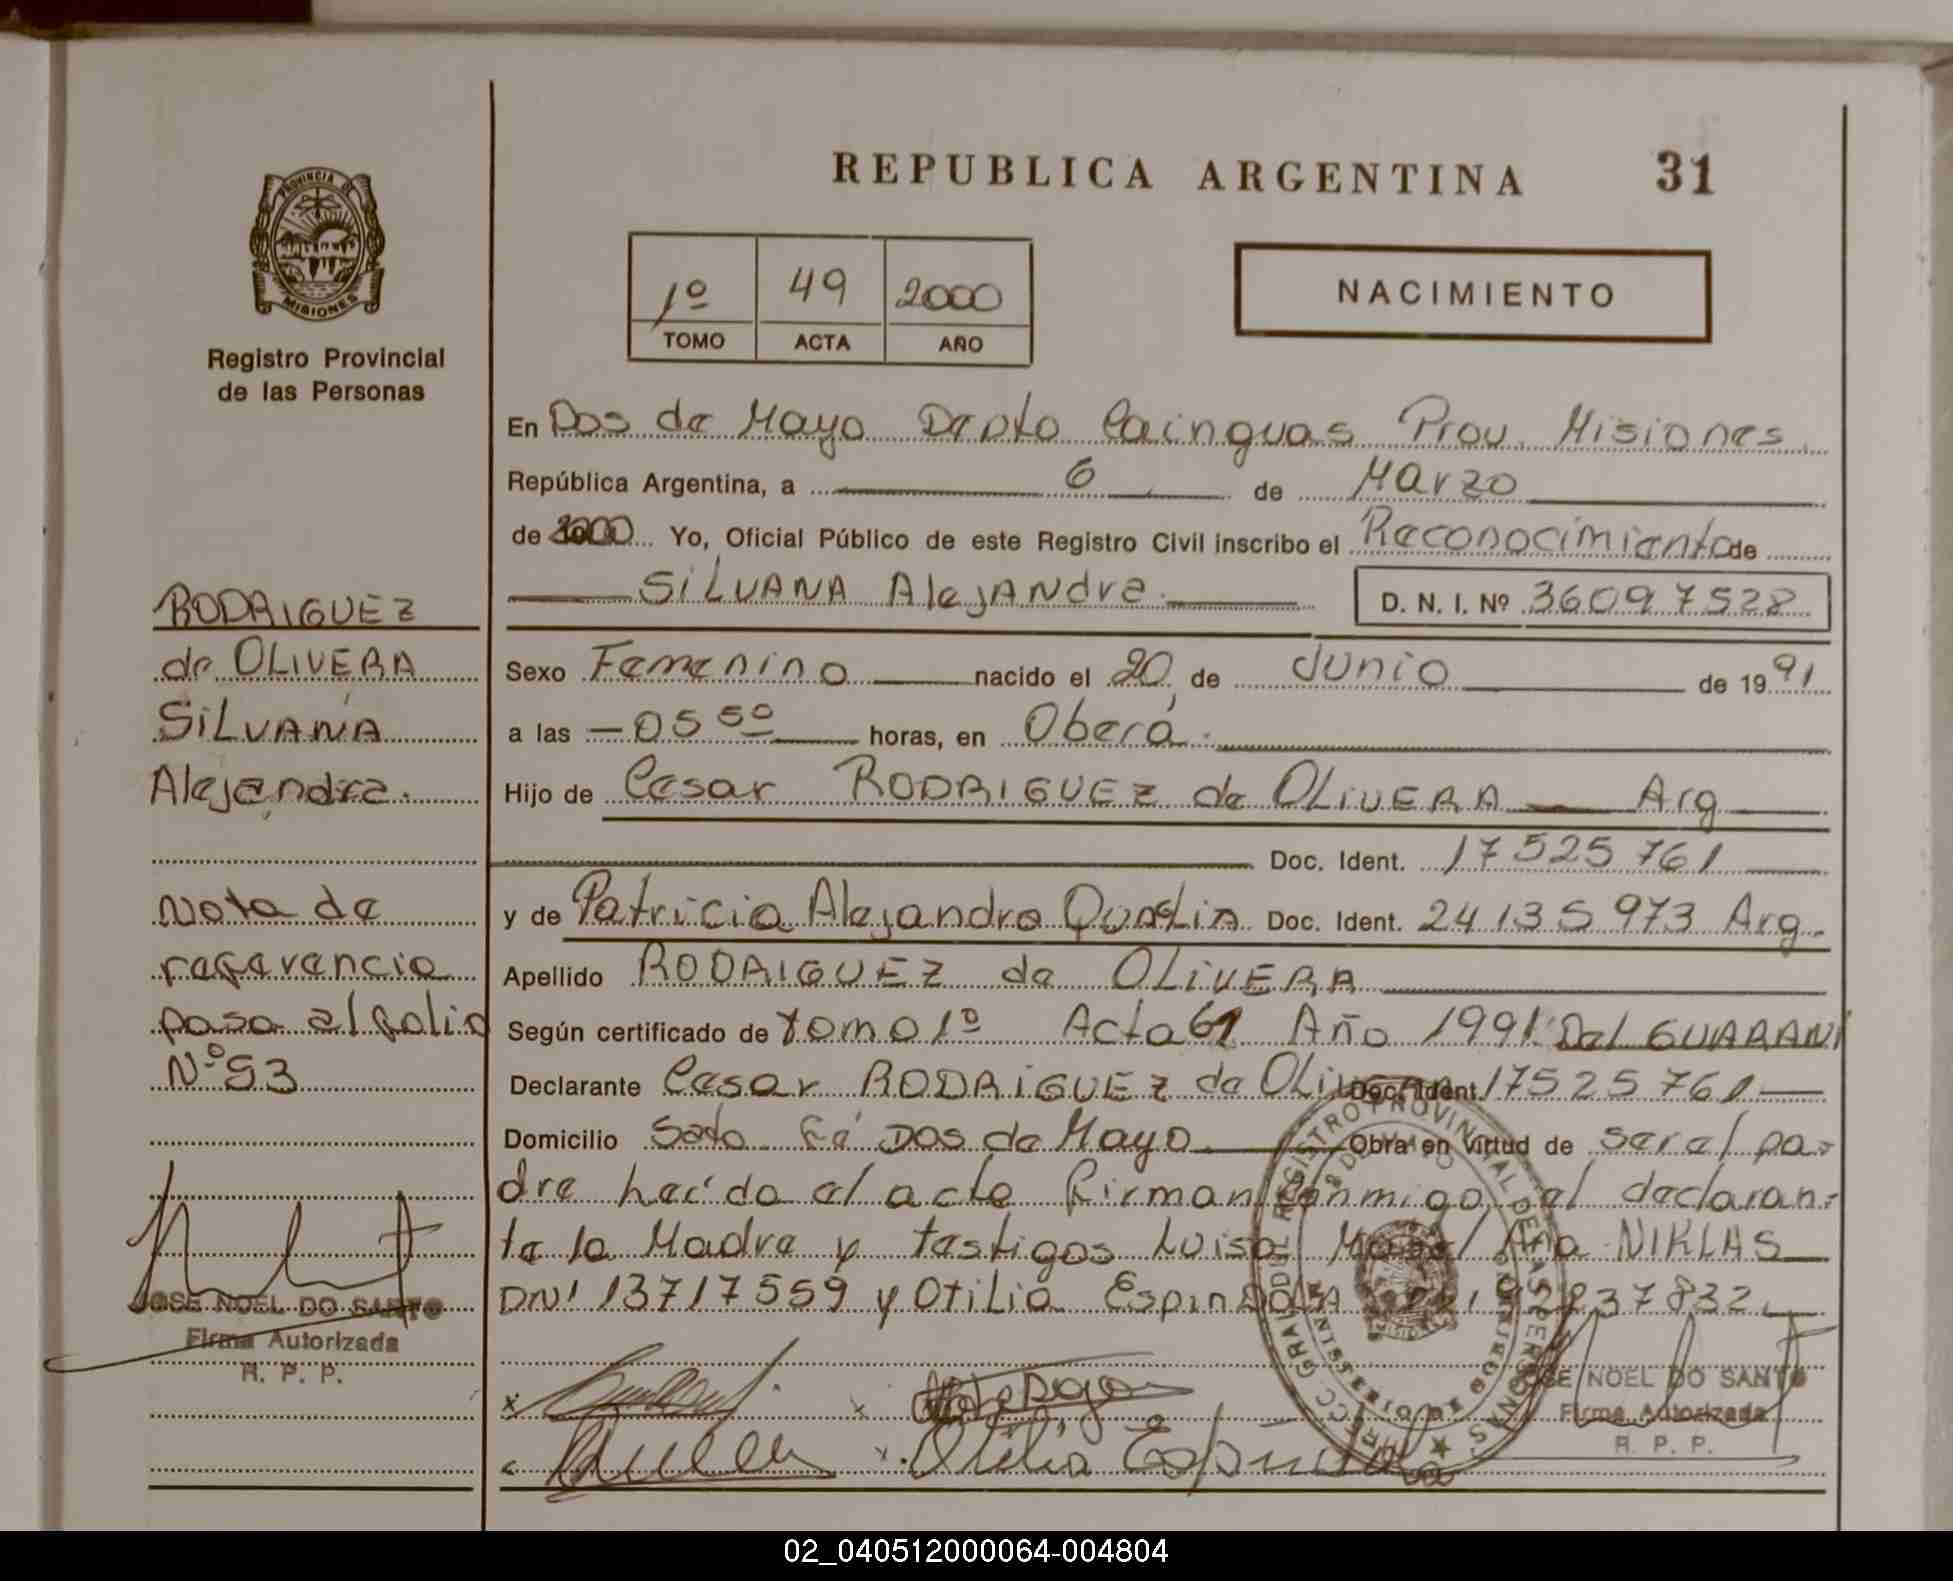 REPUBLICA ARGENTINA 31
PROVINCIA DE
MISIONES
Registro Provincial
de las Personas
1º 49 2000
TOMO ACTA AÑO
NACIMIENTO
En Dos de Mayo Depto Cainguas Prov. Misiones
República Argentina, a 6 de Marzo
de 2000 Yo, Oficial Público de este Registro Civil inscribo el Reconocimiento de
SILVANA AlejANdra D. N. I. Nº 36097528
Sexo Femenino nacido el 20 de Junio de 1991
a las 05 50 horas, en Oberá
Hijo de Cesar RODRIGUEZ de OLIVERA Arg
Doc. Ident. 17525761
y de Patricia Alejandra Doc. Ident. 24135973 Arg.
Apellido RODRIGUEZ de OLIVERA
Según certificado de tomo 1º Acta 61 Año 1991 Del GUARANI
Declarante Cesar RODRIGUEZ de OLIVERA Doc. Ident. 17525761
Domicilio Sato Fé Dos de Mayo Obra en virtud de ser al pa-
dre heido el acto firman conmigo, el declaran-
te la Madre y testigos Luisa Ana NIKLAS
DNI 13717559 y Otilia Espindola 37832
Otilia Espindola
JOSE NOEL DO SANTO
Firma Autorizada
R. P. P.
REGISTRO PROVINCIAL DE LAS PERSONAS
2 DE MAYO
MISIONES
RODRIGUEZ
de OLIVERA
SILVANA
Alejandra.
Nota de
referencia
pasa al folio
Nº 53
JOSE NOEL DO SANTO
Firma Autorizada
R. P. P.
02_040512000064-004804